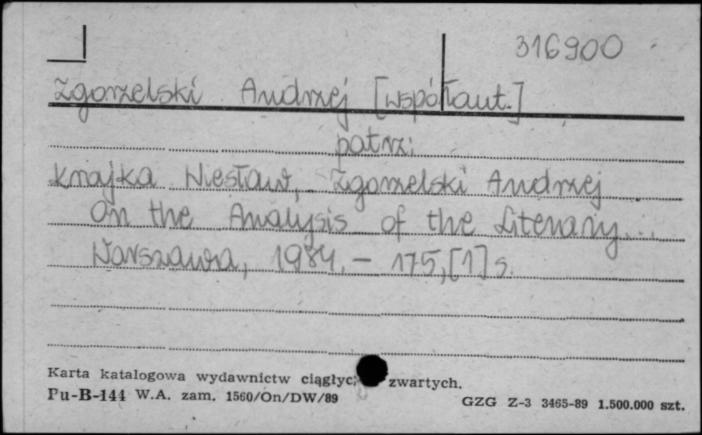 316900
Zgorzelski Andrzej [współaut.]
patrz:
Krajka Wiesław, Zgorzelski Andrzej
On the Analysis of the Literary...
Warszawa, 1984. – 175,[1] s.
Karta katalogowa wydawnictw zwartych.
Pu-B-144 W.A. zam. 1560/On/DW/89
GZG Z-3 3465-89 1.500.000 szt.